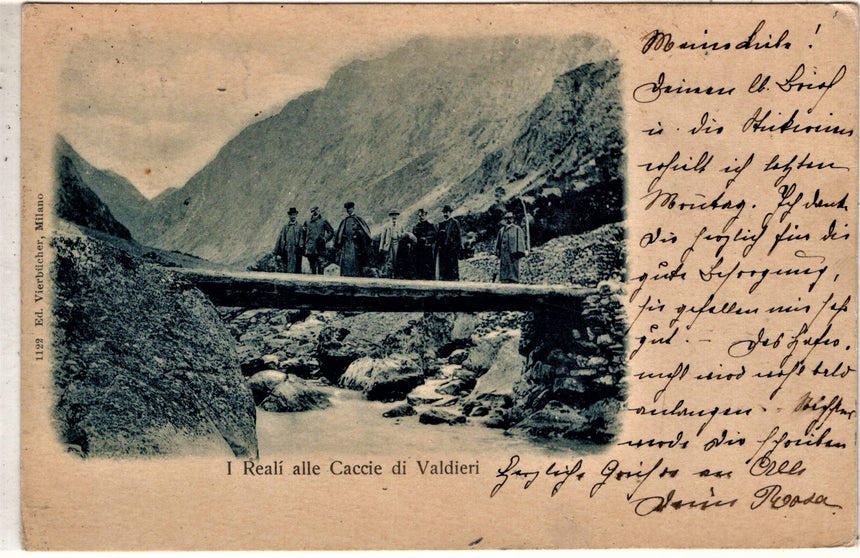 1122 Ed. Vierbücher, Milano
I Reali alle Caccie di Valdieri
Meine Liebe!
Deinen lb. Brief
u. die
erhielt ich letzten
Montag. Ich danke
Dir herzlich für die
gute Besorgung,
sie gefallen mir sehr
gut. — Das
wird wohl bald
anlangen.
werde Dir schreiben
Herzliche Grüsse an Alle
Deine Rosa